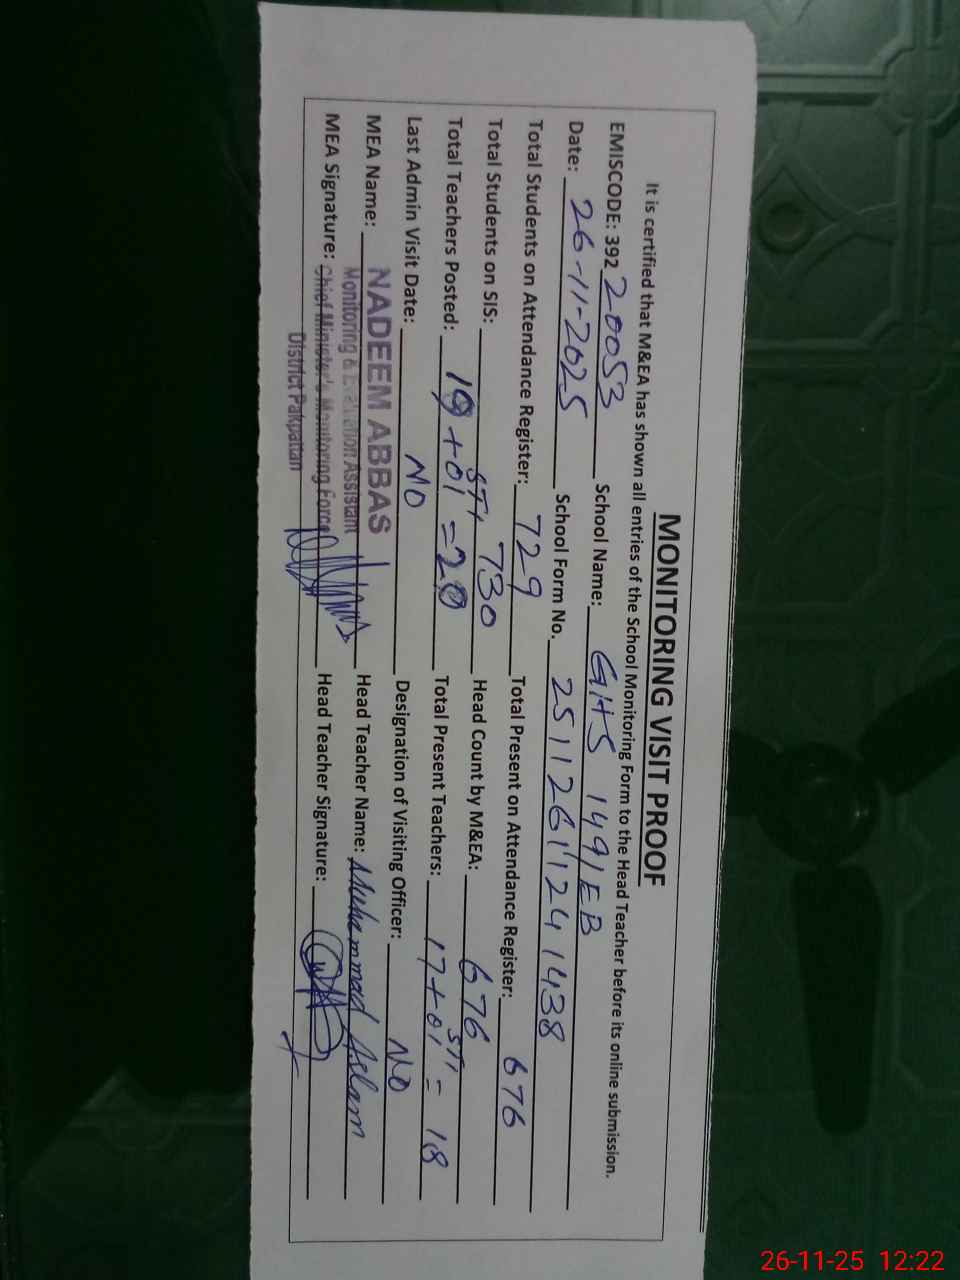 MONITORING VISIT PROOF
It is certified that M&EA has shown all entries of the School Monitoring Form to the Head Teacher before its online submission.
EMISCODE: 392 20053 School Name: GHS 149/EB
Date: 26-11-2025 School Form No. 25112611241438
Total Students on Attendance Register: 729 Total Present on Attendance Register: 676
Total Students on SIS: 730 Head Count by M&EA: 676
Total Teachers Posted: 19 + 01 STI = 20 Total Present Teachers: 17 + 01 STI = 18
Last Admin Visit Date: NO Designation of Visiting Officer: NO
MEA Name: NADEEM ABBAS Head Teacher Name: Muhammad Aslam
Monitoring & Evaluation Assistant
MEA Signature: Chief Minister's Monitoring Force Head Teacher Signature:
District Pakpattan
26-11-25 12:22